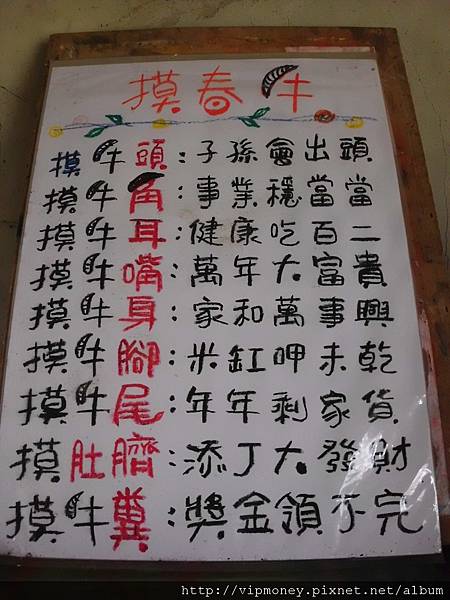 摸春牛
摸牛頭：子孫會出頭
摸牛角：事業穩當當
摸牛耳：健康吃百二
摸牛嘴：萬年大富貴
摸牛身：家和萬事興
摸牛腳：米缸呷未乾
摸牛尾：年年剩家貨
摸肚臍：添丁大發財
摸牛糞：獎金領不完
http://vipmoney.pixnet.net/album